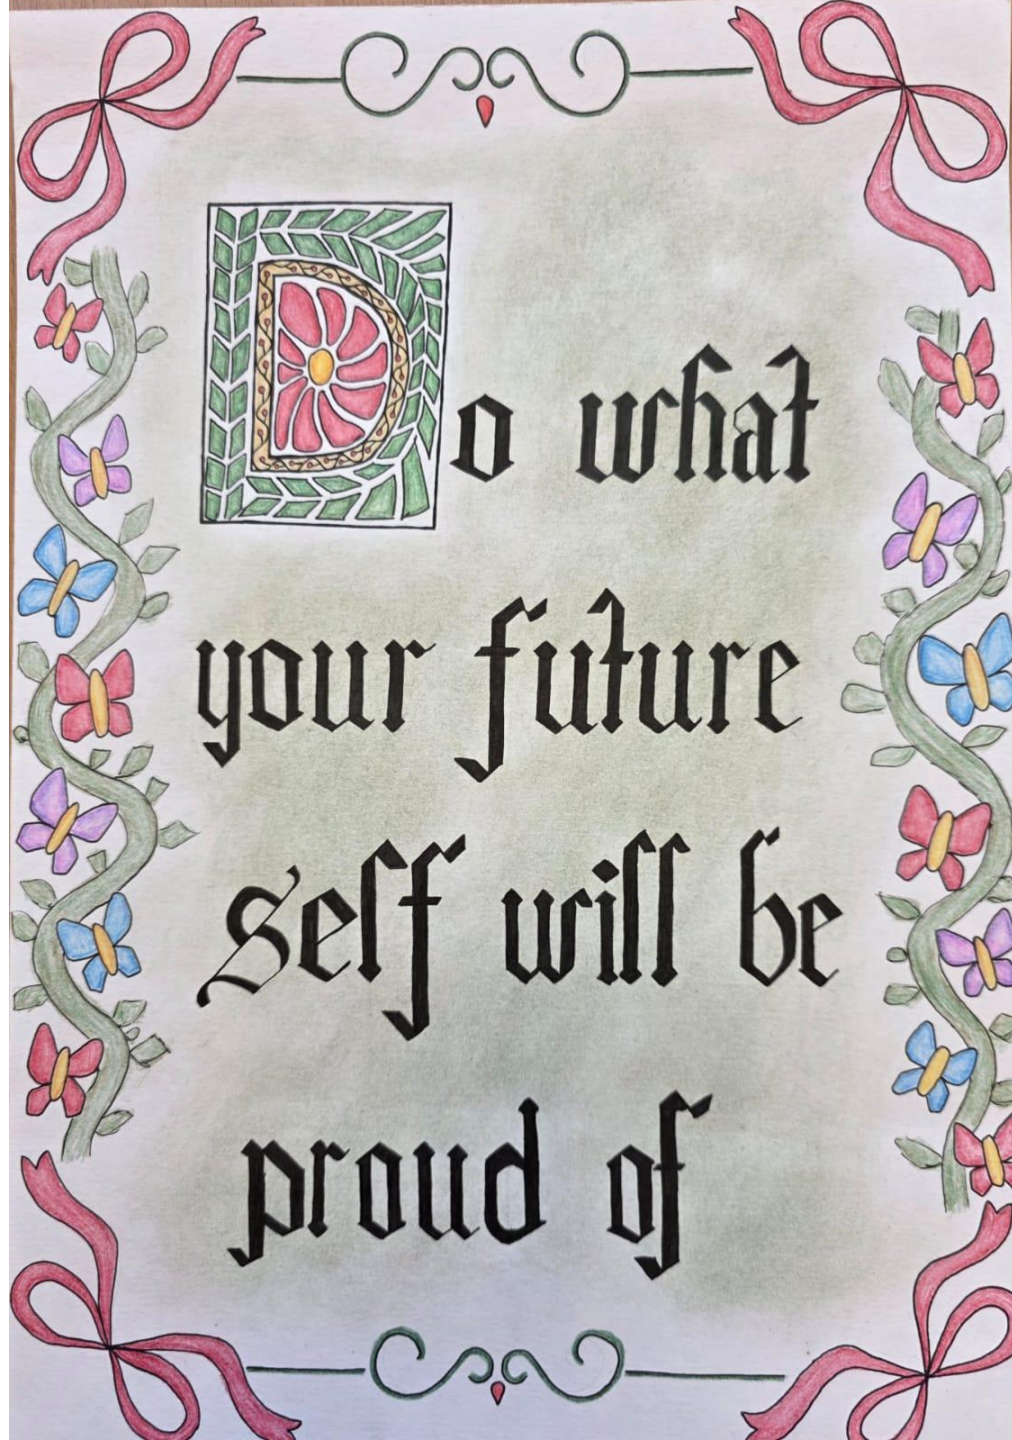 Do what
your future
self will be
proud of